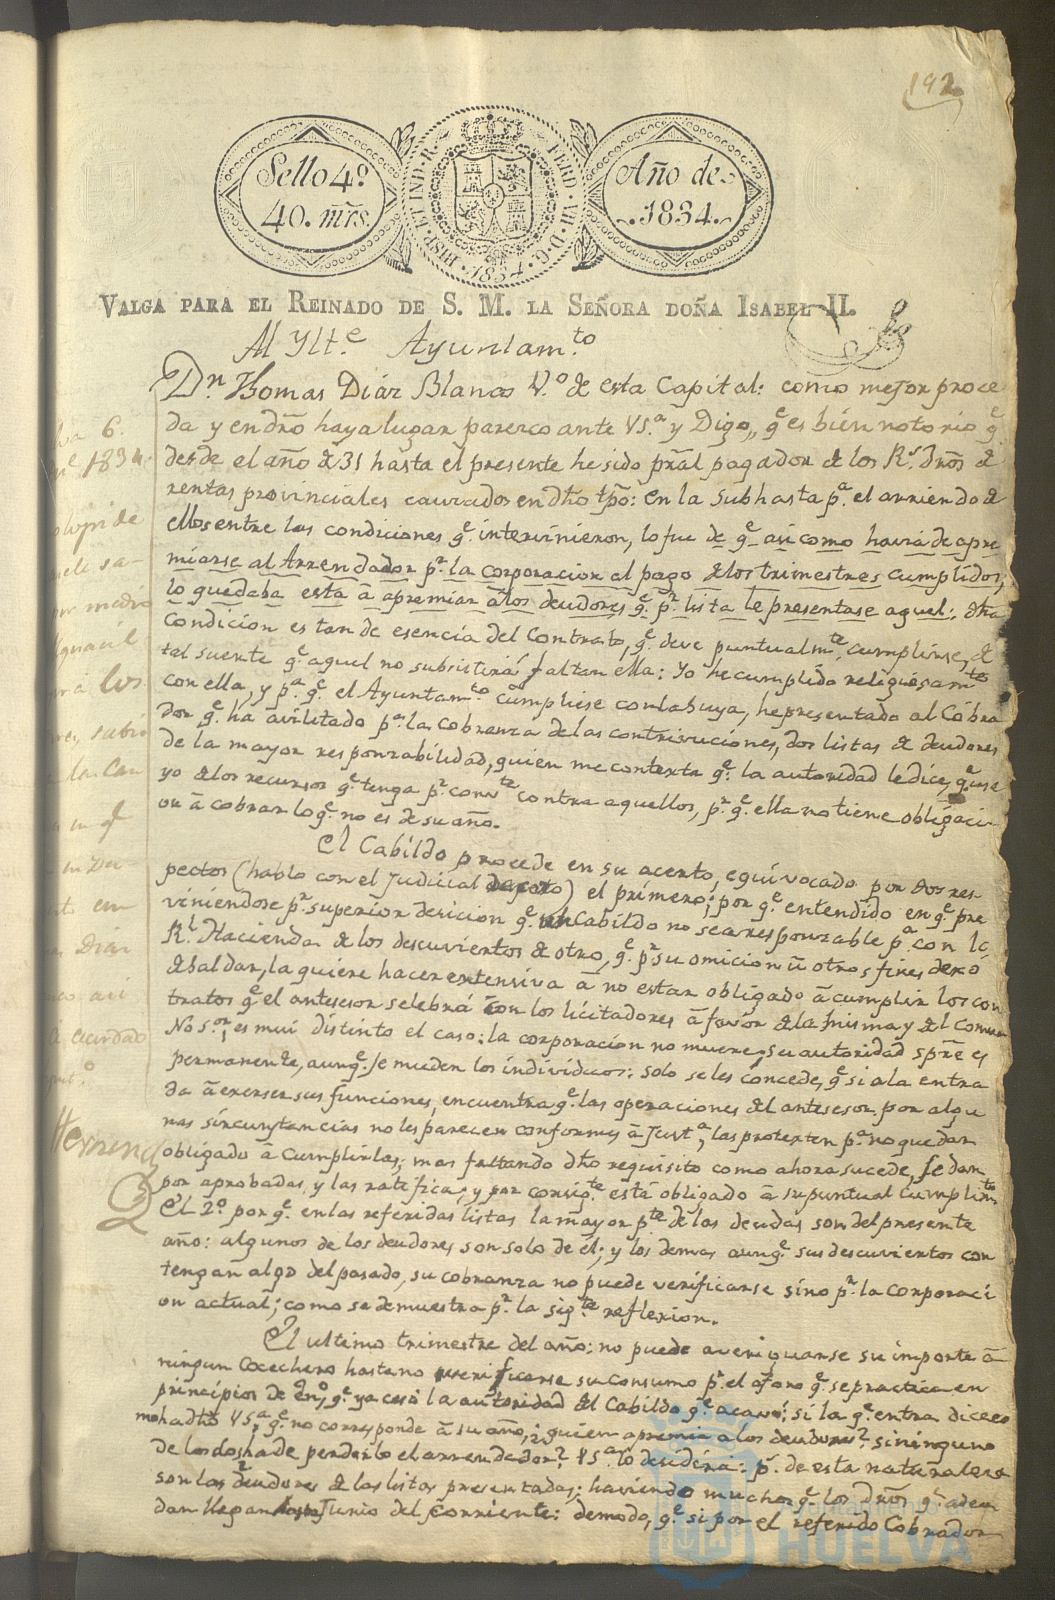 192
Sello 4º
40. mrs.
HISP. ET IND. R. FERD. VII. D. G.
1834
Año de
1834.
VALGA PARA EL REINADO DE S. M. LA SEÑORA DOÑA ISABEL II.
Al Ylt.e Ayuntam.to
Dn. Thomas Diaz Blanco V.º de esta Capital: como mejor proce
da y en dro haya lugar parezco ante VS.a y Digo,, q.e es bien notorio q.e
desde el año de 31 hasta el presente he sido pral pagador de los Rs. dros de
rentas provinciales causados en dho tpo: en la subhasta p.a el arriendo de
ellos entre las condiciones q.e intervinieron, lo fue de q.e asi como havia de apre
miarse al Arrendador p.r la corporacion al pago de los trimestres cumplidos,
lo quedaba esta á apremiar á los deudores q.e p.r lista le presentase aquel: dha
condicion es tan de esencia del Contrato, q.e deve puntualm.te cumplirse, de
tal suerte q.e aquel no subsistirá faltan ella: Yo he cumplido religiosam.to
con ella, y p.a q.e el Ayuntam.to cumpliese con la suya, he presentado al Cobra
dor q.e ha avilitado p.a la cobranza de las contrivuciones, dos listas de deudores
de la mayor responzabilidad, quien me contexta q.e la autoridad le dice, q.e use
yo de los recursos q.e tenga p.r conv.te contra aquellos, p.r q.e ella no tiene obligaci
on á cobrar lo q.e no es de su año.
El Cabildo procede en su acerto, equivocado por dos res
pectos (hablo con el Judicial ) el primero; por q.e entendido en q.e pre
viniendose p.r superior desicion q.e un Cabildo no sea responzable p.a con la
Rl. Hacienda de los descuviertos de otro, q.e p.r su omicion ú otros fines dexó
de saldar, la quiere hacer extensiva á no estar obligado á cumplir los con
tratos q.e el antesesor selebrá con los licitadores á favor de la misma y del Comun
No s.or; es mui distinto el caso: la corporacion no muere; su autoridad spre es
permanente, aunq.e se muden los individuos: solo se les concede, q.e si a la entra
da á exerser sus funciones, encuentra q.e las operaciones del antesesor por algu
nas sircunstancias no les parecen conformes á Just.a, las protexten p.a no quedar
obligado á cumplirlas; mas faltando dho requisito como ahora sucede, se dan
por aprobadas, y las ratifica; y por consig.te está obligado á su puntual cumplim.to
El 2.º por q.e en las referidas listas la mayor p.te de las deudas son del presente
año: algunos de los deudores son solo de él; y los demas aunq.e sus descuviertos con
tengan algo del pasado, su cobranza no puede verificarse sino p.r la corporaci
on actual; como se demuestra p.r la sig.te reflexion.
El ultimo trimestre del año: no puede averiguarse su importe á
ningun Cocechero hasta no verificarse su consumo p.r el aforo q.e se practica en
principios de En.o q.e ya cesó la autoridad del Cabildo q.e acavó; si la q.e entra dice co
mo ha dho VS.a q.e no corresponde á su año, ¿quien apremia a los deudores? sininguno
de los dos ha de perderlo el arrendador? VS.a lo desidirá: p.s de esta naturaleza
son las deudores de las listas presentadas; haviendo muchos q.e los dros q.e adeu
dan llegan hasta Junio del corriente: de modo, q.e si por el referido Cobrador
6.
1834.
medio
los
Diaz
Ayuntamiento de
HUELVA